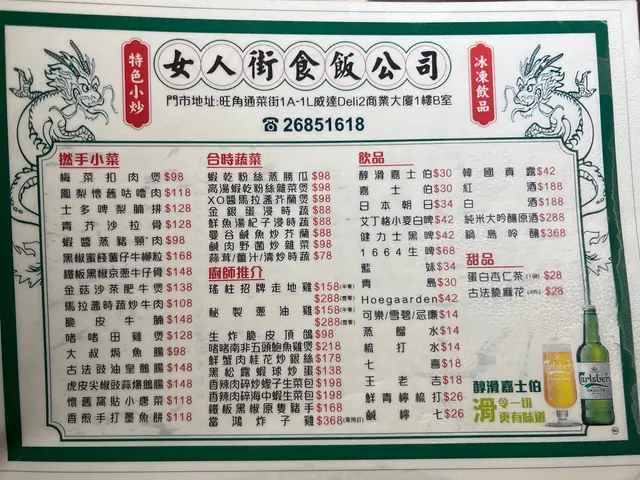 特色小炒
女人街食飯公司
冰凍飲品
門市地址:旺角通菜街1A-1L威達Deli2商業大廈1樓B室
☎26851618
撚手小菜
梅菜扣肉煲$98
鳳梨懷舊咕嚕肉$118
士多啤梨腩排$128
青芥沙拉骨$128
蝦醬蒸豬頸肉$98
黑椒蜜餞薯仔牛柳粒$168
鐵板黑椒京蔥牛仔骨$148
金菇沙茶肥牛煲$138
馬拉盞時蔬炒牛肉$108
脆皮牛腩$148
啫啫田雞煲$128
大叔焗魚腸$98
古法豉油皇鵝腸$148
虎皮尖椒豉蒜爆鵝腸$148
懷舊窩貼小唐菜$118
香煎手打墨魚餅$118
合時蔬菜
蝦乾粉絲蒸勝瓜$98
高湯蝦乾粉絲雜菜煲$98
XO醬馬拉盞芥蘭煲$98
金銀蛋浸時蔬$88
鮮魚湯杞子浸時蔬$88
曼谷鹹魚炒芥蘭$88
鹹肉野菌炒雜菜$98
蒜茸/薑汁/清炒時蔬$78
廚師推介
瑤柱招牌走地雞$158(半隻)
$288(壹隻)
秘製蔥油雞$158(半隻)
$288(壹隻)
生炸脆皮頂鴿$98
啫啫南非五頭鮑魚雞煲$218
鮮蟹肉桂花炒銀絲$178
黑松露蝦球炒蛋$138
香辣肉碎炒蟶子生菜包$198
香辣肉碎海中蝦生菜包$198
鐵板黑椒原隻豬手$168
當鴻炸子雞$368(需預訂)
飲品
醇滑嘉士伯$30
嘉士伯$30
日本朝日$34
艾丁格小麥白啤$42
健力士黑啤$42
1664生啤$68
藍妹$34
青島$30
Hoegaarden$42
可樂/雪碧/忌廉$14
蒸餾水$14
梳打水$14
七喜$18
王老吉$18
鮮青檸梳打$26
鹹檸七$26
韓國真露$42
紅酒$188
白酒$188
純米大吟釀原酒$288
鍋島吟釀$368
甜品
蛋白杏仁茶$28
古法脆麻花$28
醇滑嘉士伯
滑令一切
更有味道
Carlsberg
Carlsberg